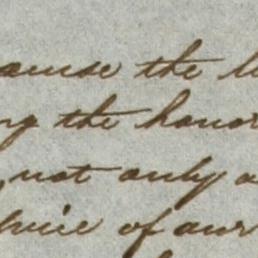 ause the
ng the honor
, not only a
vice of our